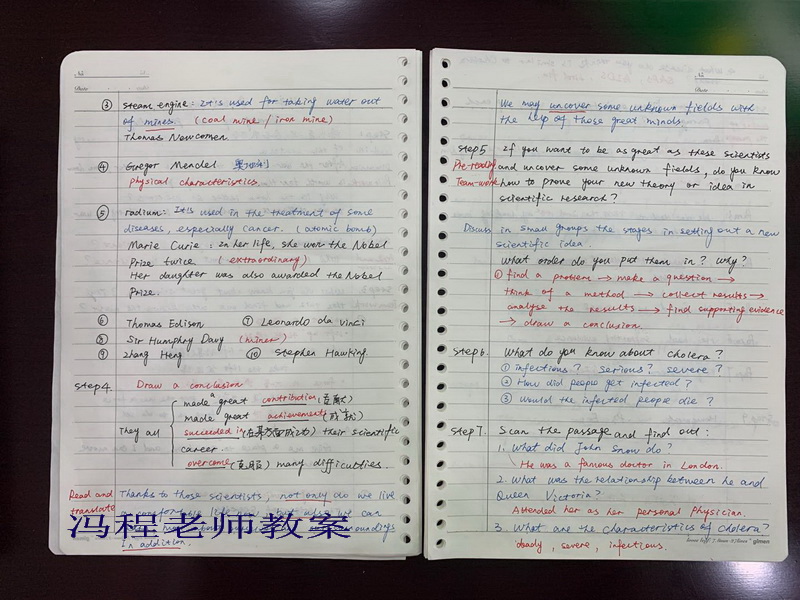 ③ steam engine: It's used for taking water out
of mines. (coal mine / iron mine)
Thomas Newcomen
④ Gregor Mendel 奥地利
physical characteristics
⑤ radium: It's used in the treatment of some
diseases, especially cancer. (atomic bomb)
Marie Curie: In her life, she won the Nobel
Prize twice (extraordinary)
Her daughter was also awarded the Nobel
Prize.
⑥ Thomas Edison ⑦ Leonardo da Vinci
⑧ Sir Humphry Davy (miner)
⑨ Zhang Heng ⑩ Stephen Hawking
step4 Draw a conclusion
made a great contribution (贡献)
made great achievements (成就)
They all succeeded in (在某方面成功) their scientific
career
overcome (克服) many difficulties.
Read and translate
Thanks to those scientists, not only do we live
a comfortable life now, but also we can
surroundings
In addition.
冯程老师教案
We may uncover some unknown fields with
the help of those great minds.
step5 If you want to be as great as these scientists
Pre-reading and uncover some unknown fields, do you know
Team-work how to prove your new theory or idea in
scientific research?
Discuss in small groups the stages in setting out a new
scientific idea.
What order do you put them in? Why?
① find a problem → make a question →
think of a method → collect results →
analyse the results → find supporting evidence
→ draw a conclusion
step6. What do you know about cholera?
① infectious? serious? severe?
② How did people get infected?
③ Would the infected people die?
step7. Scan the passage and find out:
1. What did John Snow do?
He was a famous doctor in London.
2. What was the relationship between he and
Queen Victoria?
Attended her as her personal physician.
3. What are the characteristics of cholera?
deady, severe, infectious.
gimen